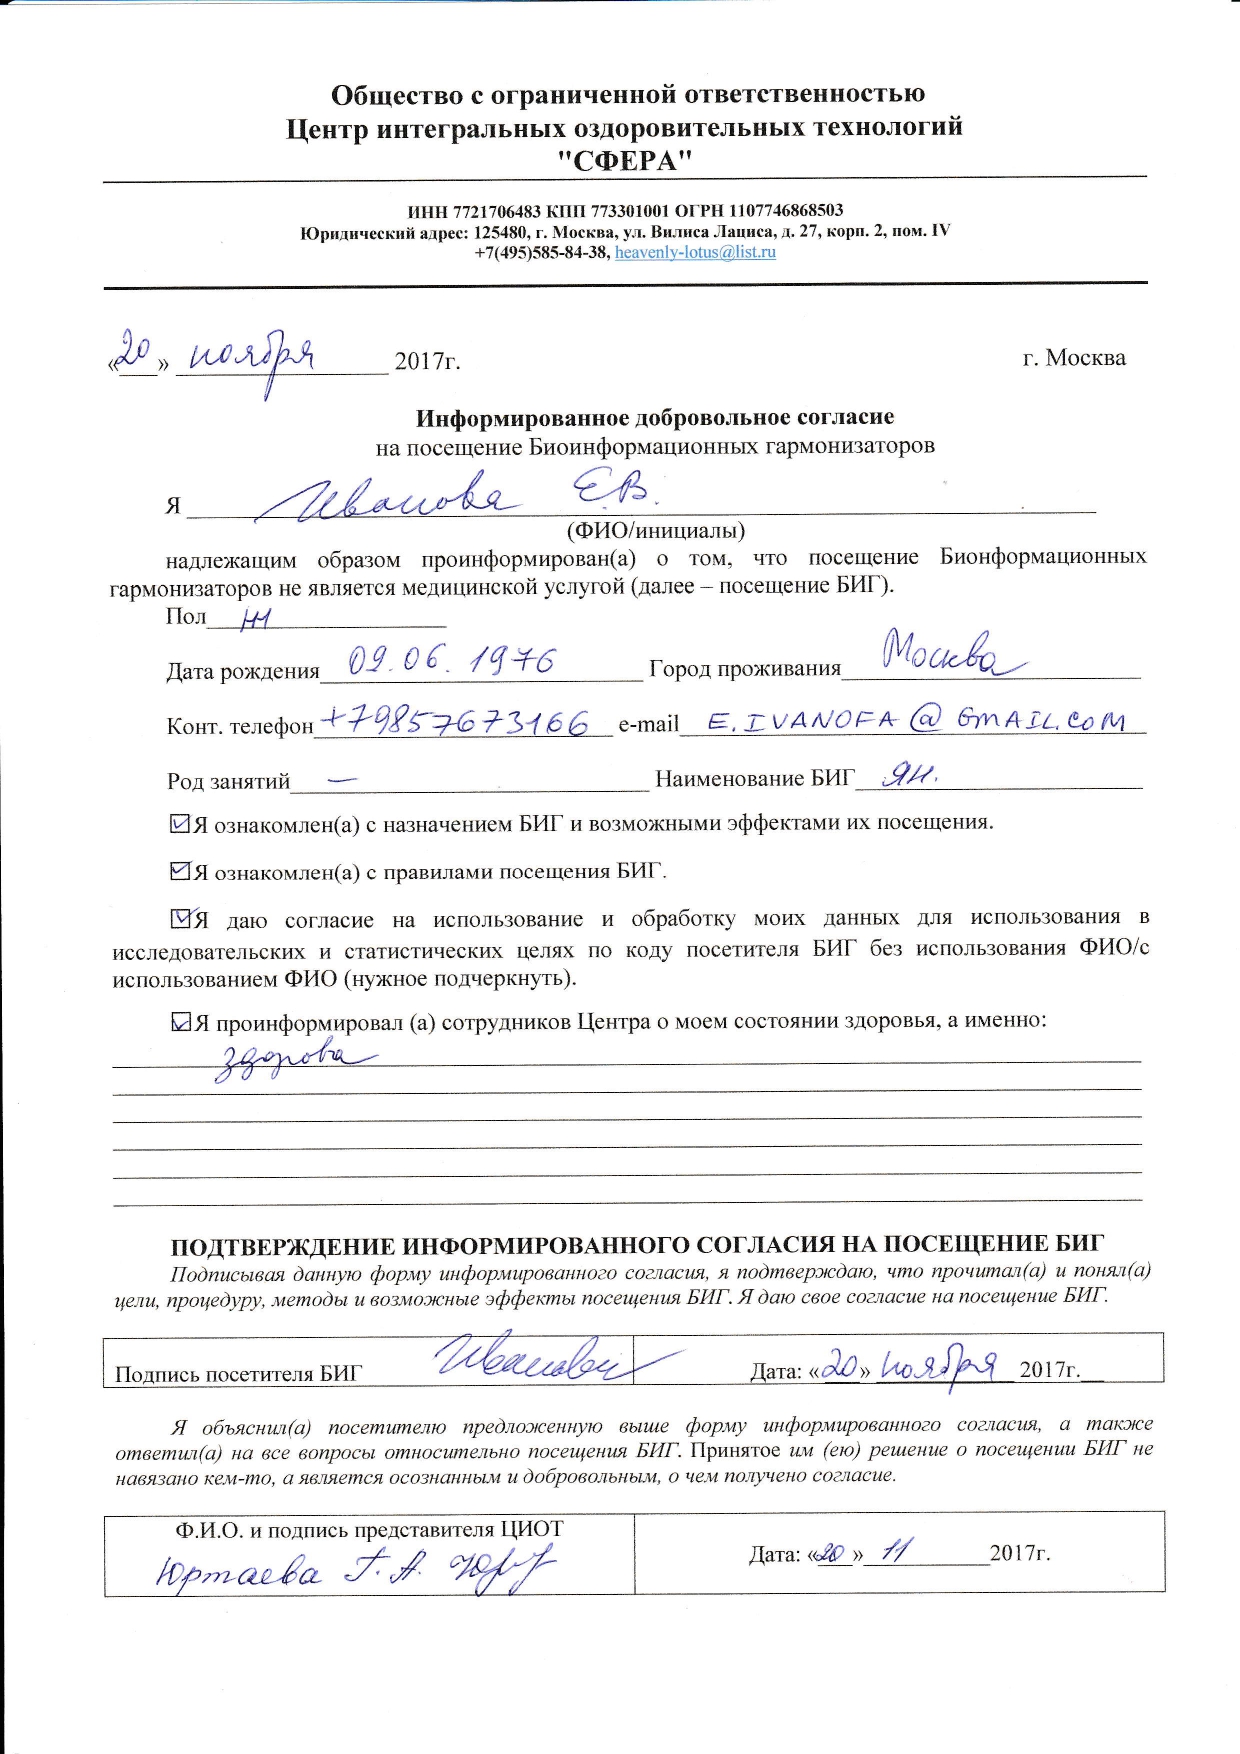 Общество с ограниченной ответственностью
Центр интегральных оздоровительных технологий
"СФЕРА"
ИНН 7721706483 КПП 773301001 ОГРН 1107746868503
Юридический адрес: 125480, г. Москва, ул. Вилиса Лациса, д. 27, корп. 2, пом. IV
+7(495)585-84-38, heavenly-lotus@list.ru
«20» ноября 2017г. г. Москва
Информированное добровольное согласие
на посещение Биоинформационных гармонизаторов
Я Иванова Е.В.
(ФИО/инициалы)
надлежащим образом проинформирован(а) о том, что посещение Бионформационных
гармонизаторов не является медицинской услугой (далее – посещение БИГ).
Пол ж
Дата рождения 09.06.1976 Город проживания Москва
Конт. телефон +79857673166 e-mail E.IVANOFA@GMAIL.COM
Род занятий — Наименование БИГ ЯН.
Я ознакомлен(а) с назначением БИГ и возможными эффектами их посещения.
Я ознакомлен(а) с правилами посещения БИГ.
Я даю согласие на использование и обработку моих данных для использования в
исследовательских и статистических целях по коду посетителя БИГ без использования ФИО/с
использованием ФИО (нужное подчеркнуть).
Я проинформировал (а) сотрудников Центра о моем состоянии здоровья, а именно:
здорова
ПОДТВЕРЖДЕНИЕ ИНФОРМИРОВАННОГО СОГЛАСИЯ НА ПОСЕЩЕНИЕ БИГ
Подписывая данную форму информированного согласия, я подтверждаю, что прочитал(а) и понял(а)
цели, процедуру, методы и возможные эффекты посещения БИГ. Я даю свое согласие на посещение БИГ.
Подпись посетителя БИГ Дата: «20» ноября 2017г.
Я объяснил(а) посетителю предложенную выше форму информированного согласия, а также
ответил(а) на все вопросы относительно посещения БИГ. Принятое им (ею) решение о посещении БИГ не
навязано кем-то, а является осознанным и добровольным, о чем получено согласие.
Ф.И.О. и подпись представителя ЦИОТ
Юртаева Г.А. Дата: «20» 11 2017г.